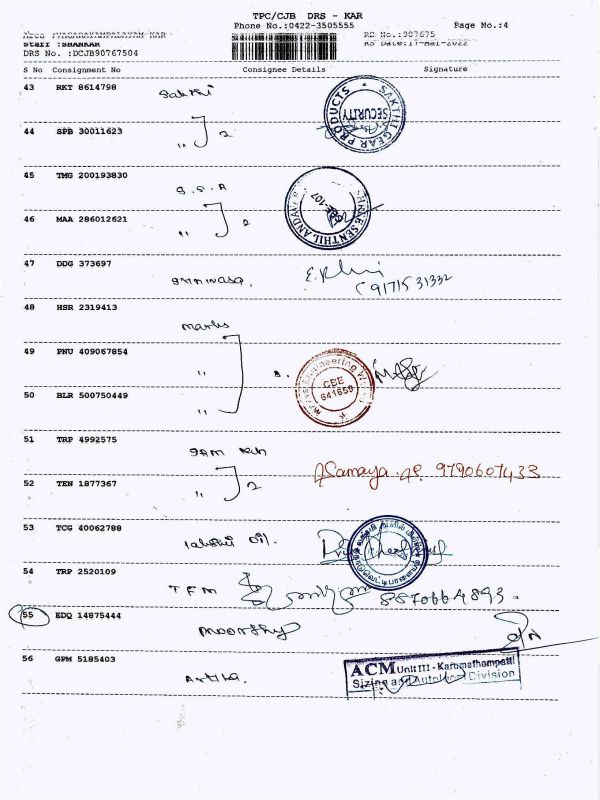 TPC/CJB DRS - KAR
Phone No.:0422-3505555 Page No.:4
Area :VAGARAYAMPALAYAM KAR RS No.:907675
Staff :SHANKAR RS Date:17-Mar-2022
DRS No. :DCJB90767504
S No Consignment No Consignee Details Signature
43 RKT 8614798 Sakthi
SAKTHI GEAR PRODUCTS
SECURITY
44 SPB 30011623
" ] 2
45 TMG 200193830
S.S.A
46 MAA 286012621
" ] 2
47 DDG 373697
Srinivasa.
48 HSR 2319413
marks
49 PNU 409067854
"
CBE
641659
50 BLR 500750449
"
51 TRP 4992575
52 TEN 1877367
" ] 2
9790607433
53 TCG 40062788
54 TRP 2520109
TFM 8870664893
55 EDQ 14875444
moorthy
56 GPM 5185403
ACM Unit III - Karumathampatti
Sizing and Autoloom Division